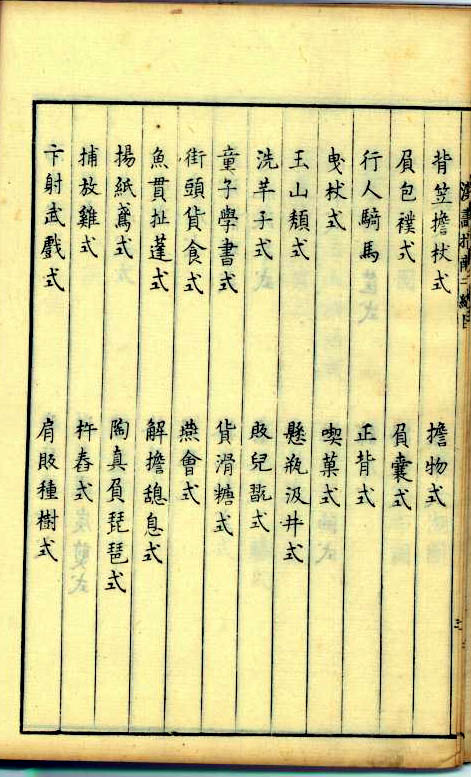 漢畫指南二編目
背笠擔杖式　擔物式
負包襆式　負囊式
行人騎馬　正背式
曳杖式　喫菓式
玉山頽式　懸瓶汲井式
洗羊子式　販兒翫式
童子學書式　貨滑糖式
街頭貨食式　燕會式
魚貫扯蓬式　解擔憩息式
揚紙鳶式　陶真負琵琶式
捕放雞式　杵舂式
卞射武戲式　肩販種樹式
三